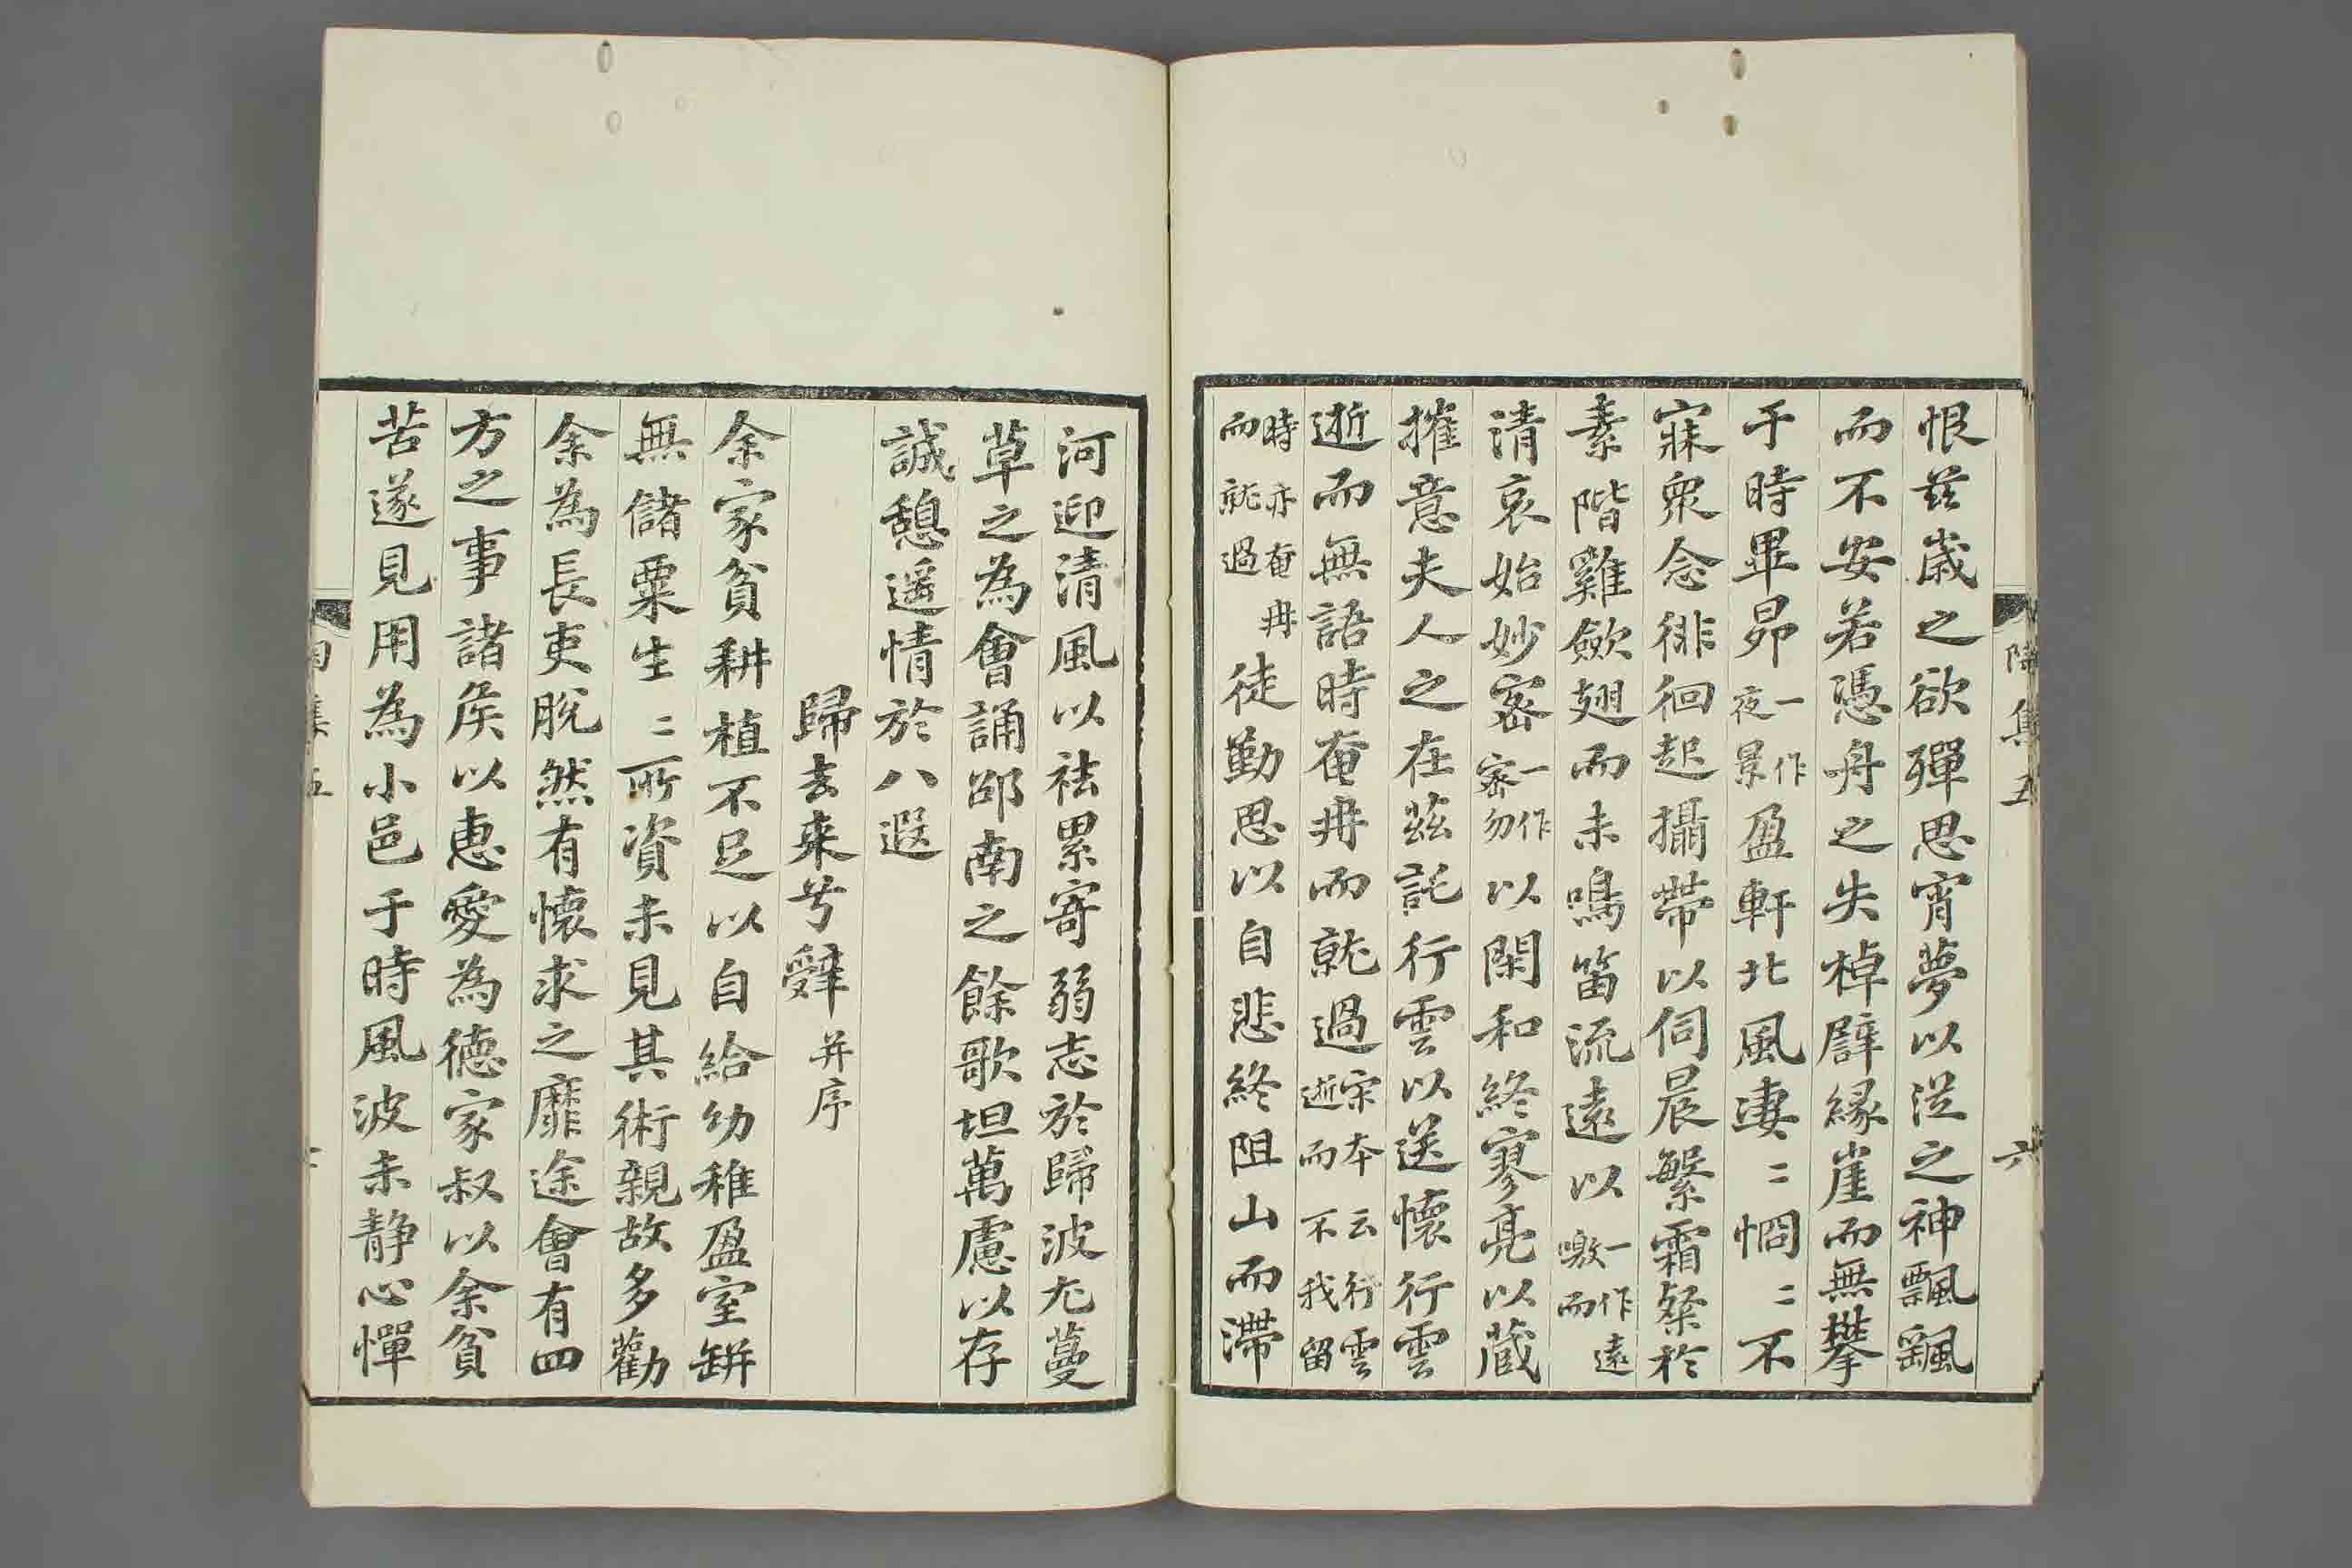 陶集五 六
恨茲歲之欲殫思宵夢以從之神飄颻
而不安若憑舟之失棹譬緣崖而無攀
于時畢昴一作夜景盈軒北風淒〻惘〻不
寐衆念徘徊起攝帶以伺晨繁霜粲於
素階雞斂翅而未鳴笛流遠以一作遠嗷而
清哀始妙密一作密勿以閑和終寥亮以藏
摧意夫人之在茲託行雲以送懷行雲
逝而無語時奄冉而就過宋本云行雲逝而不我留
時亦奄冉而就過徒勤思以自悲終阻山而滯
河迎清風以袪累寄弱志於歸波尤蔓
草之為會誦邵南之餘歌坦萬慮以存
誠憩遥情於八遐
歸去來兮辭并序
余家貧耕植不足以自給幼稚盈室缾
無儲粟生〻所資未見其術親故多勸
余為長吏脫然有懷求之靡途會有四
方之事諸侯以惠愛為德家叔以余貧
苦遂見用為小邑于時風波未靜心憚
集五